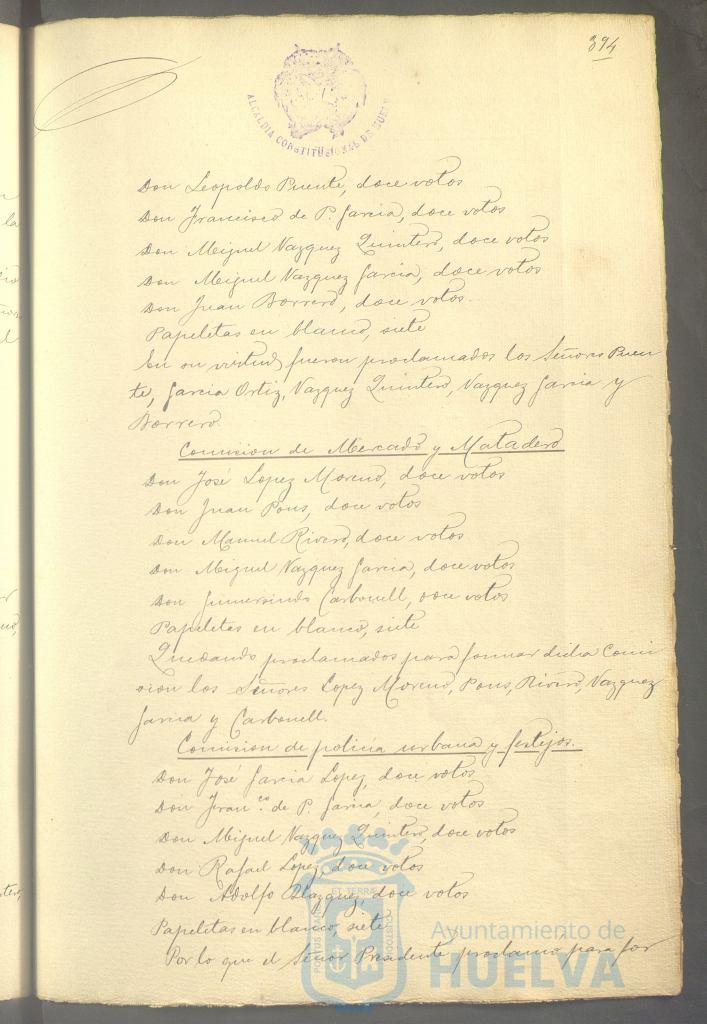 394
ALCALDIA CONSTITUCIONAL DE HUELVA
Don Leopoldo Puente, doce votos
Don Francisco de P. Garcia, doce votos
Don Miguel Vazquez Quintero, doce votos
Don Miguel Vazquez Garcia, doce votos
Don Juan Borrero, doce votos.
Papeletas en blanco, siete
En su virtud fueron proclamados los Señores Puen
te, Garcia Ortiz, Vazquez Quintero, Vazquez Garcia y
Borrero.
Comision de Mercado y Matadero
Don José Lopez Moreno, doce votos
Don Juan Pons, doce votos
Don Manuel Rivero, doce votos
Don Miguel Vazquez Garcia, doce votos
Don Gumersindo Carbonell, doce votos
Papeletas en blanco, siete
Quedando proclamados para formar dicha Comi
sion los Señores Lopez Moreno, Pons, Rivero, Vazquez
Garcia y Carbonell.
Comision de policia urbana y festejos.
Don José Garcia Lopez, doce votos
Don Fran.co de P. Garcia, doce votos
Don Miguel Vazquez Quintero, doce votos
Don Rafael Lopez, doce votos
Don Adolfo Blazquez, doce votos
Papeletas en blanco, siete
Por lo que el Señor Presidente proclamó para for
Ayuntamiento de
HUELVA